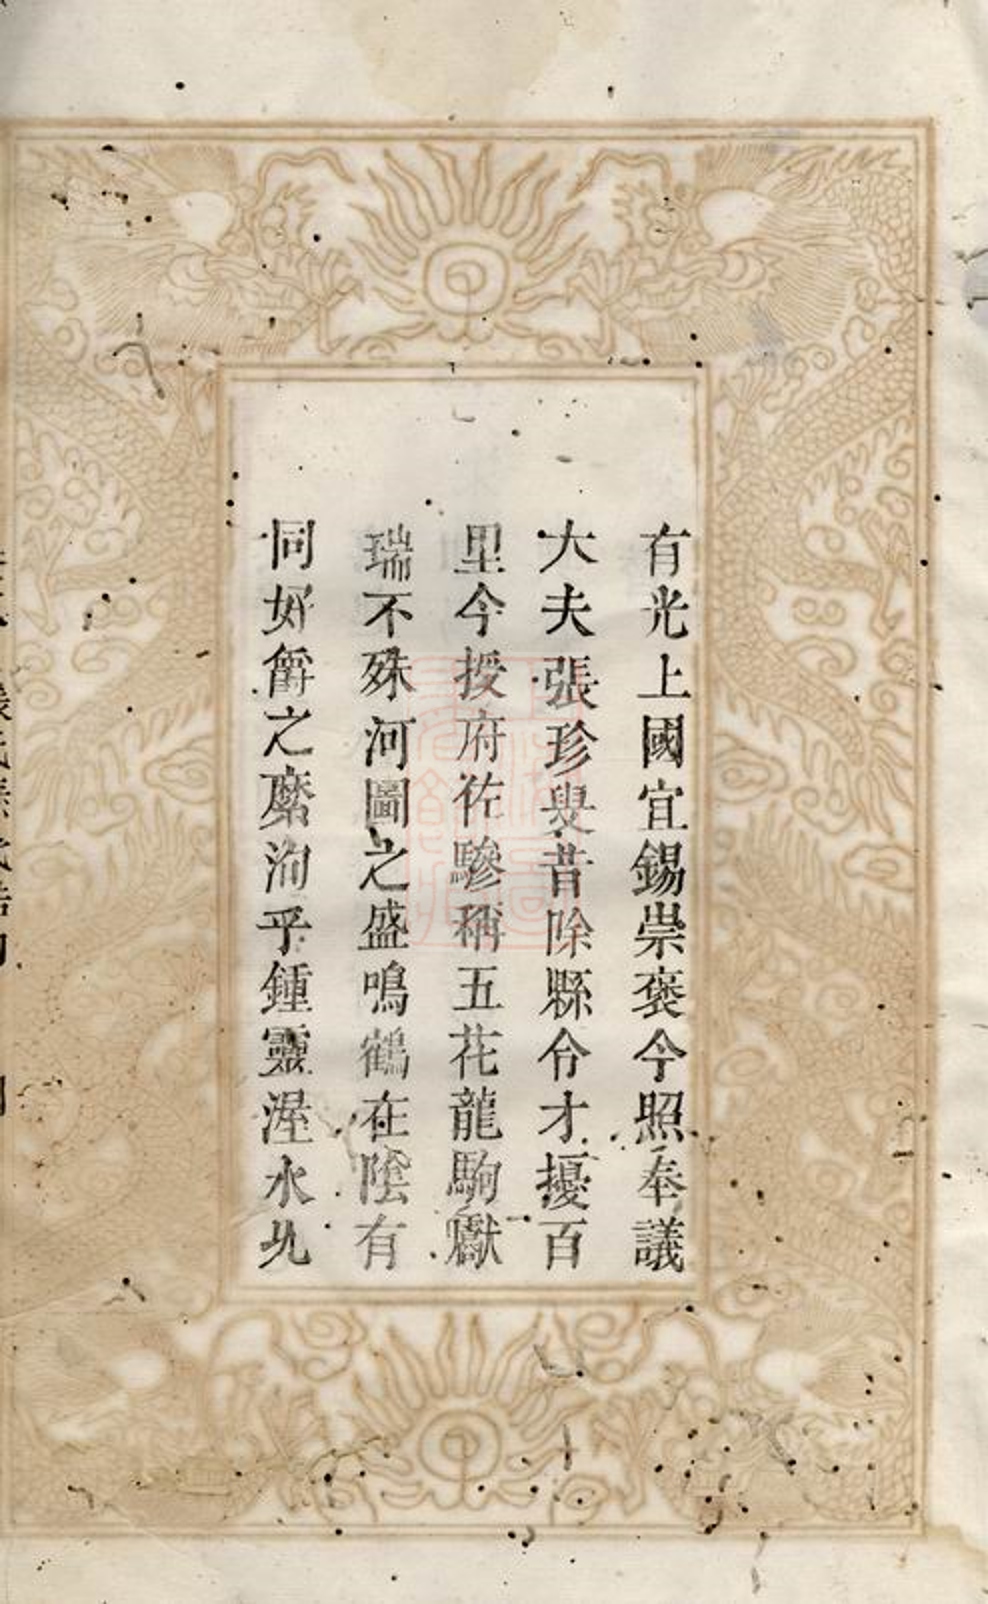 有光上國宜錫崇褒今照奉議
大夫張珍叟昔除縣令才擾百
里今授府佐驂稱五花龍駒獻
瑞不殊河圖之盛鳴鶴在陰有
同好爵之縻洵乎鍾靈渥水九